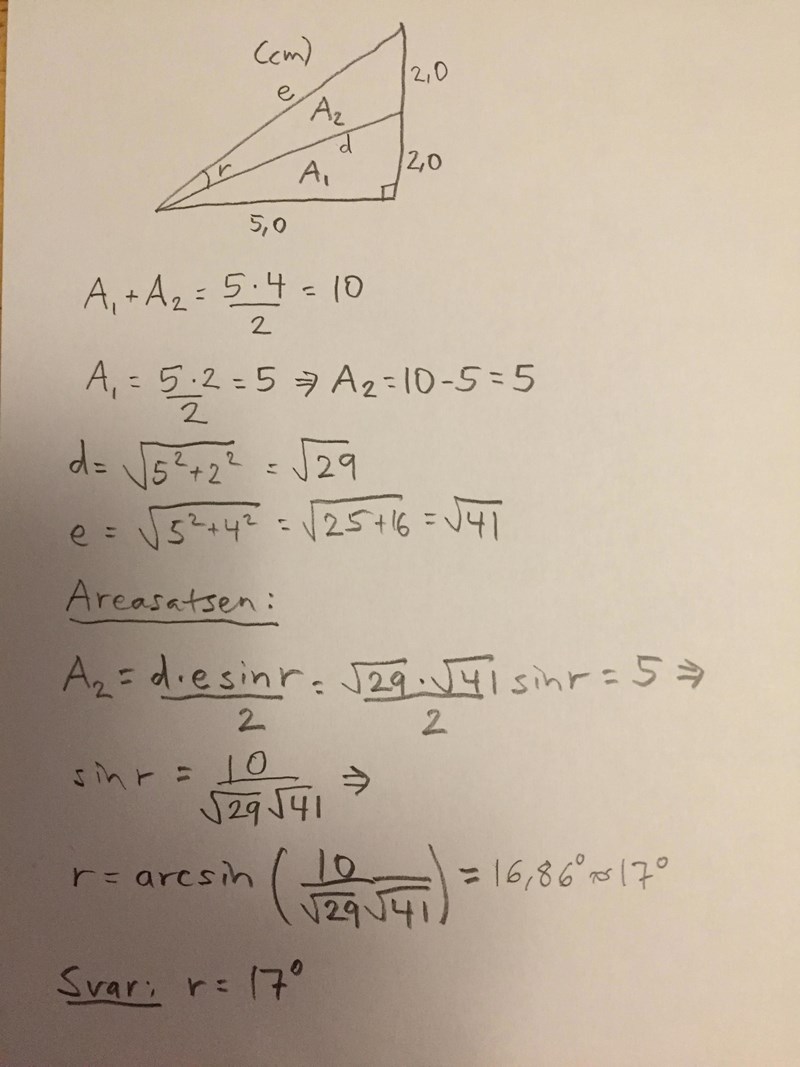 (cm)
2,0
e
A₂
d
r
A₁
2,0
5,0
A₁ + A₂ = 5·4/2 = 10
A₁ = 5·2/2 = 5 ⇒ A₂ = 10 - 5 = 5
d = √(5² + 2²) = √29
e = √(5² + 4²) = √(25 + 16) = √41
Areasatsen:
A₂ = d·e sin r/2 = √29·√41/2 sin r = 5 ⇒
sin r = 10/(√29√41) ⇒
r = arcsin (10/(√29√41)) = 16,86° ≈ 17°
Svar: r = 17°